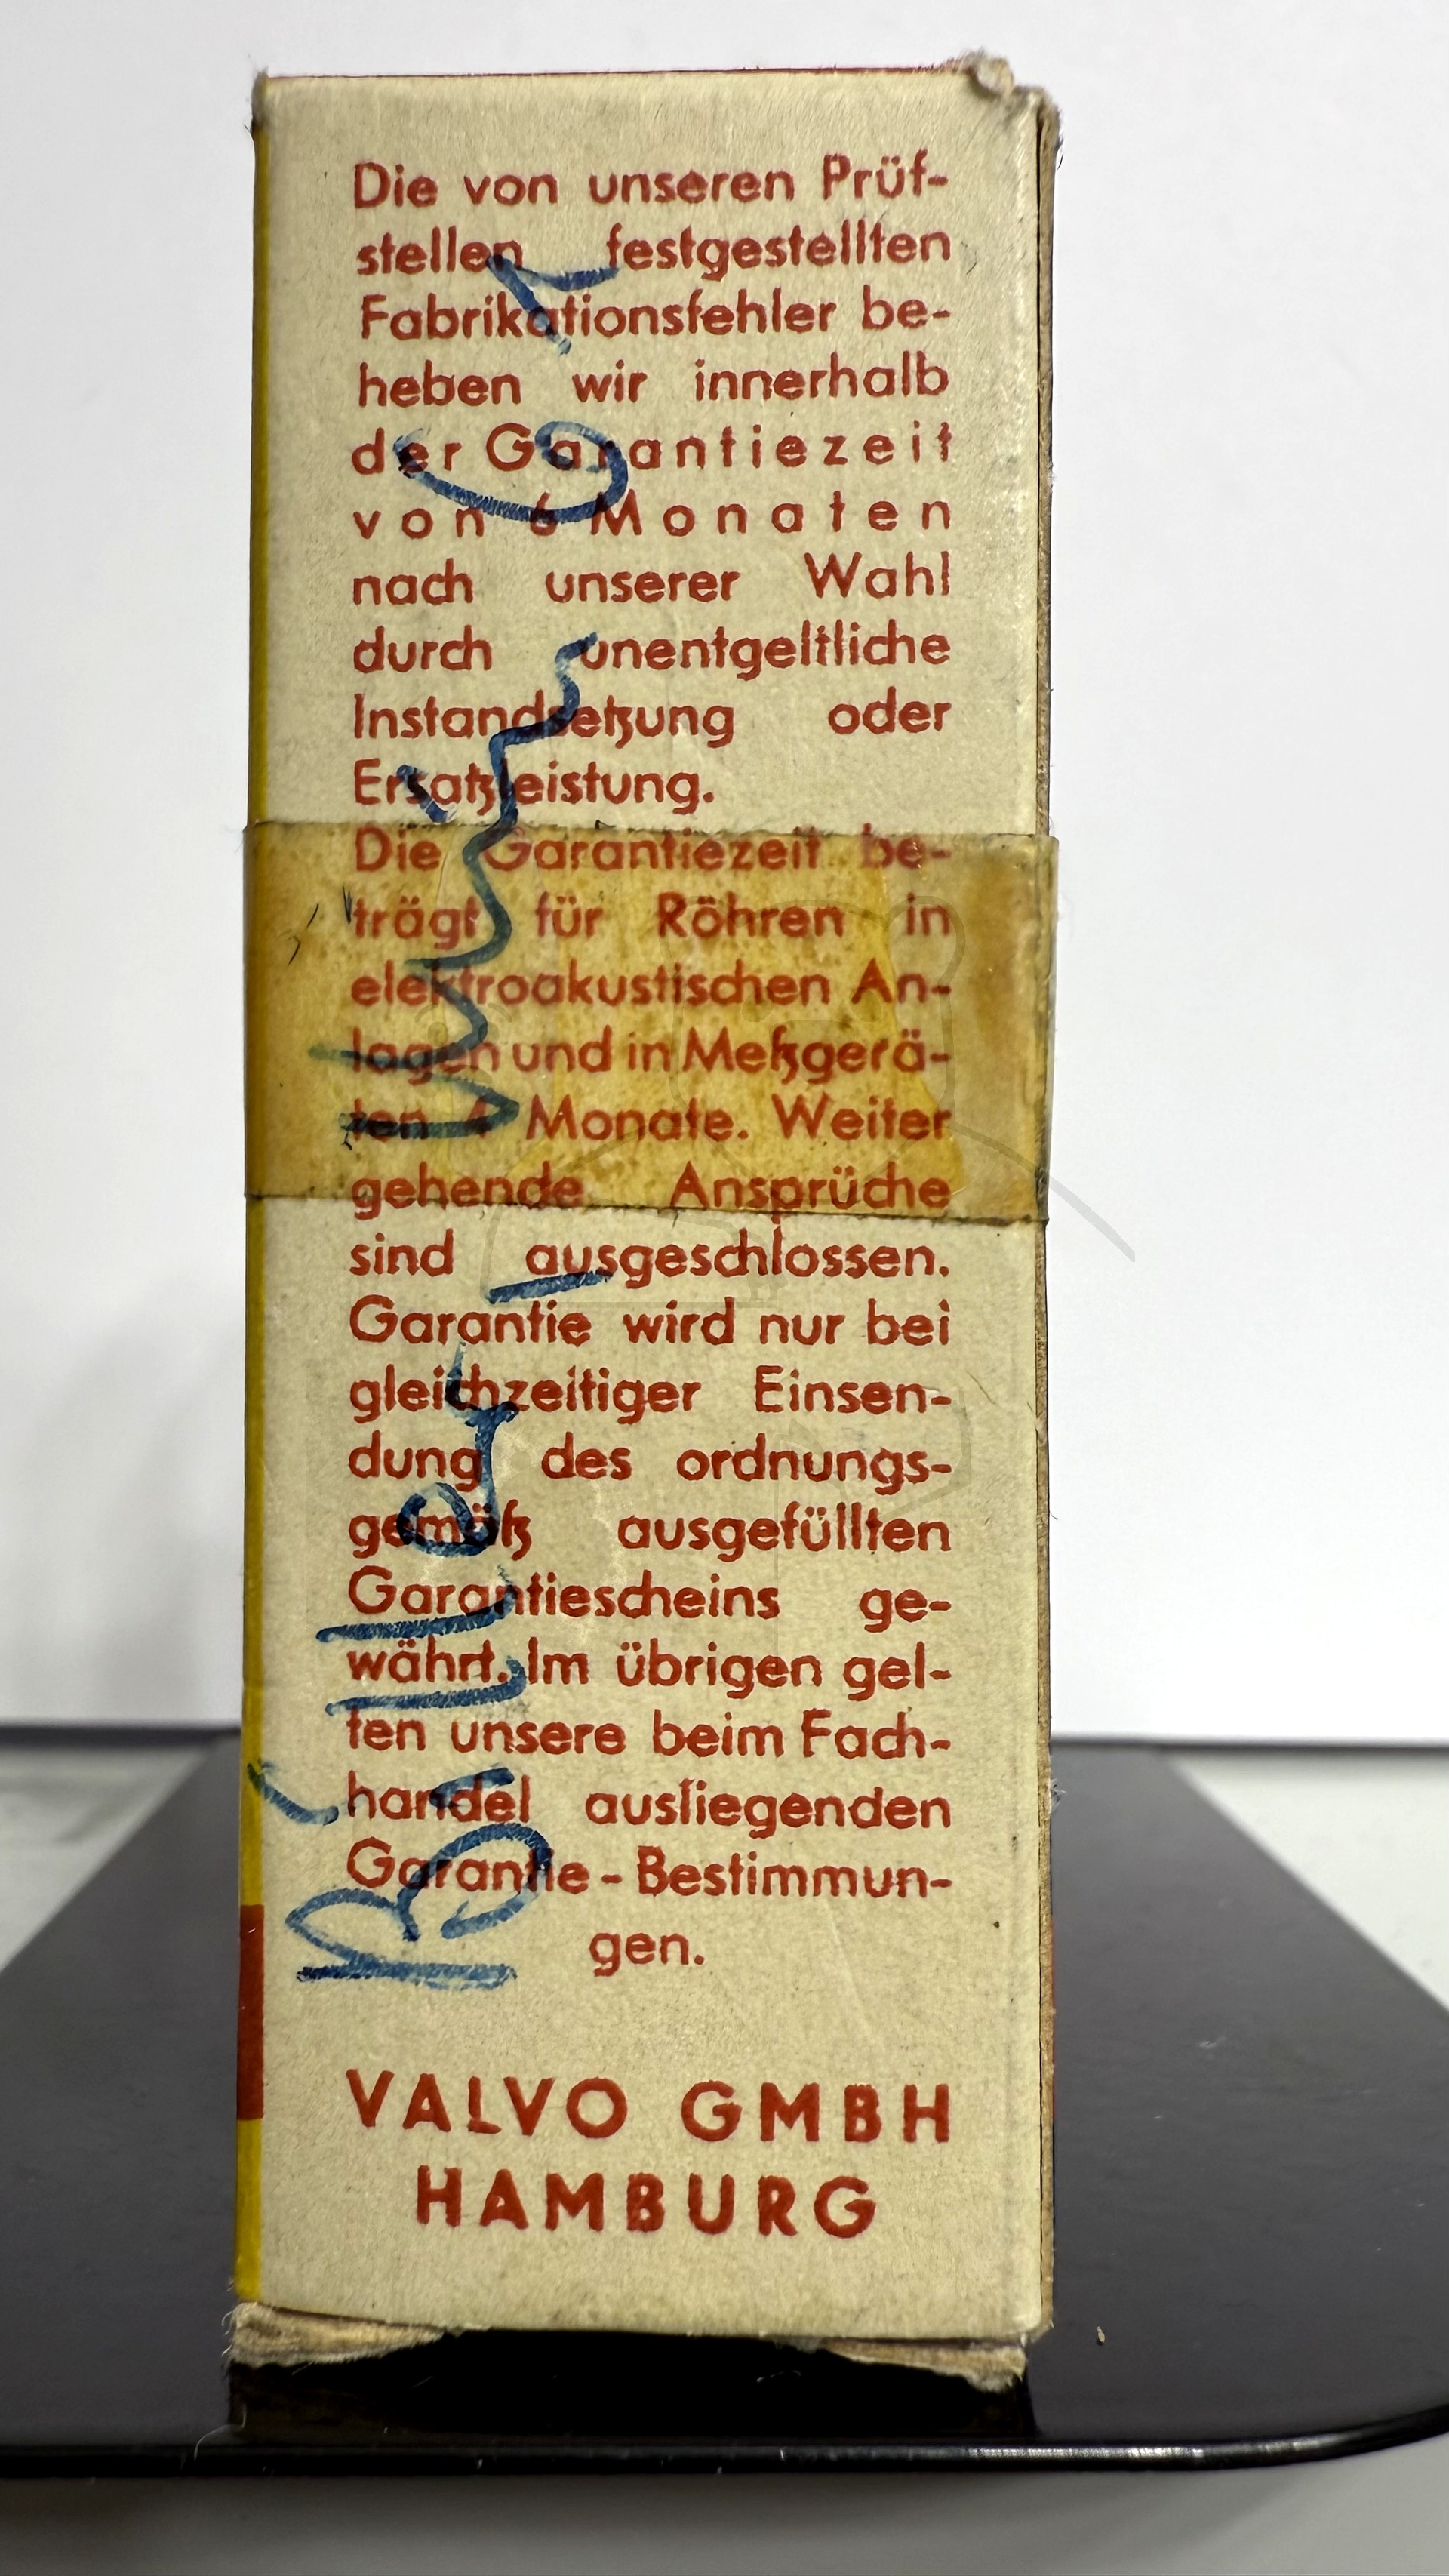 Die von unseren Prüf-
stellen festgestellten
Fabrikationsfehler be-
heben wir innerhalb
der Garantiezeit
von 6 Monaten
nach unserer Wahl
durch unentgeltliche
Instandsetzung oder
Ersatzleistung.
Die Garantiezeit be-
trägt für Röhren in
elektroakustischen An-
lagen und in Meßgerä-
ten Monate. Weiter
gehende Ansprüche
sind ausgeschlossen.
Garantie wird nur bei
gleichzeitiger Einsen-
dung des ordnungs-
gemäß ausgefüllten
Garantiescheins ge-
währt. Im übrigen gel-
ten unsere beim Fach-
handel ausliegenden
Garantie-Bestimmun-
gen.
VALVO GMBH
HAMBURG